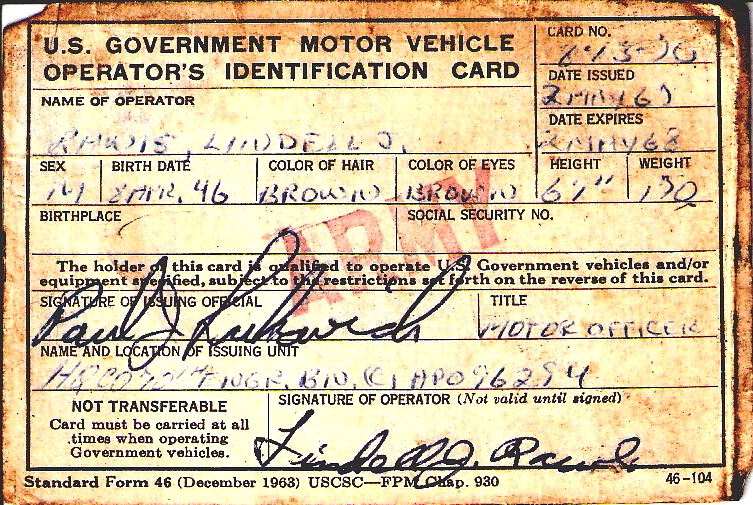 U.S. GOVERNMENT MOTOR VEHICLE
OPERATOR'S IDENTIFICATION CARD
CARD NO.
DATE ISSUED
2 MAY 65
DATE EXPIRES
2 MAY 68
NAME OF OPERATOR
RAWLS, LINDELL J.
SEX
BIRTH DATE
COLOR OF HAIR
COLOR OF EYES
HEIGHT
WEIGHT
M
8 MAR. 46
BROWN
BROWN
BIRTHPLACE
SOCIAL SECURITY NO.
ARMY
The holder of this card is qualified to operate U.S. Government vehicles and/or
equipment specified, subject to the restrictions set forth on the reverse of this card.
SIGNATURE OF ISSUING OFFICIAL
TITLE
Paul J.
MOTOR OFFICER
NAME AND LOCATION OF ISSUING UNIT
ENGR. BN. (C) APO 96294
NOT TRANSFERABLE
Card must be carried at all
times when operating
Government vehicles.
SIGNATURE OF OPERATOR (Not valid until signed)
Lindell J. Rawls
Standard Form 46 (December 1963) USCSC—FPM Chap. 930
46-104